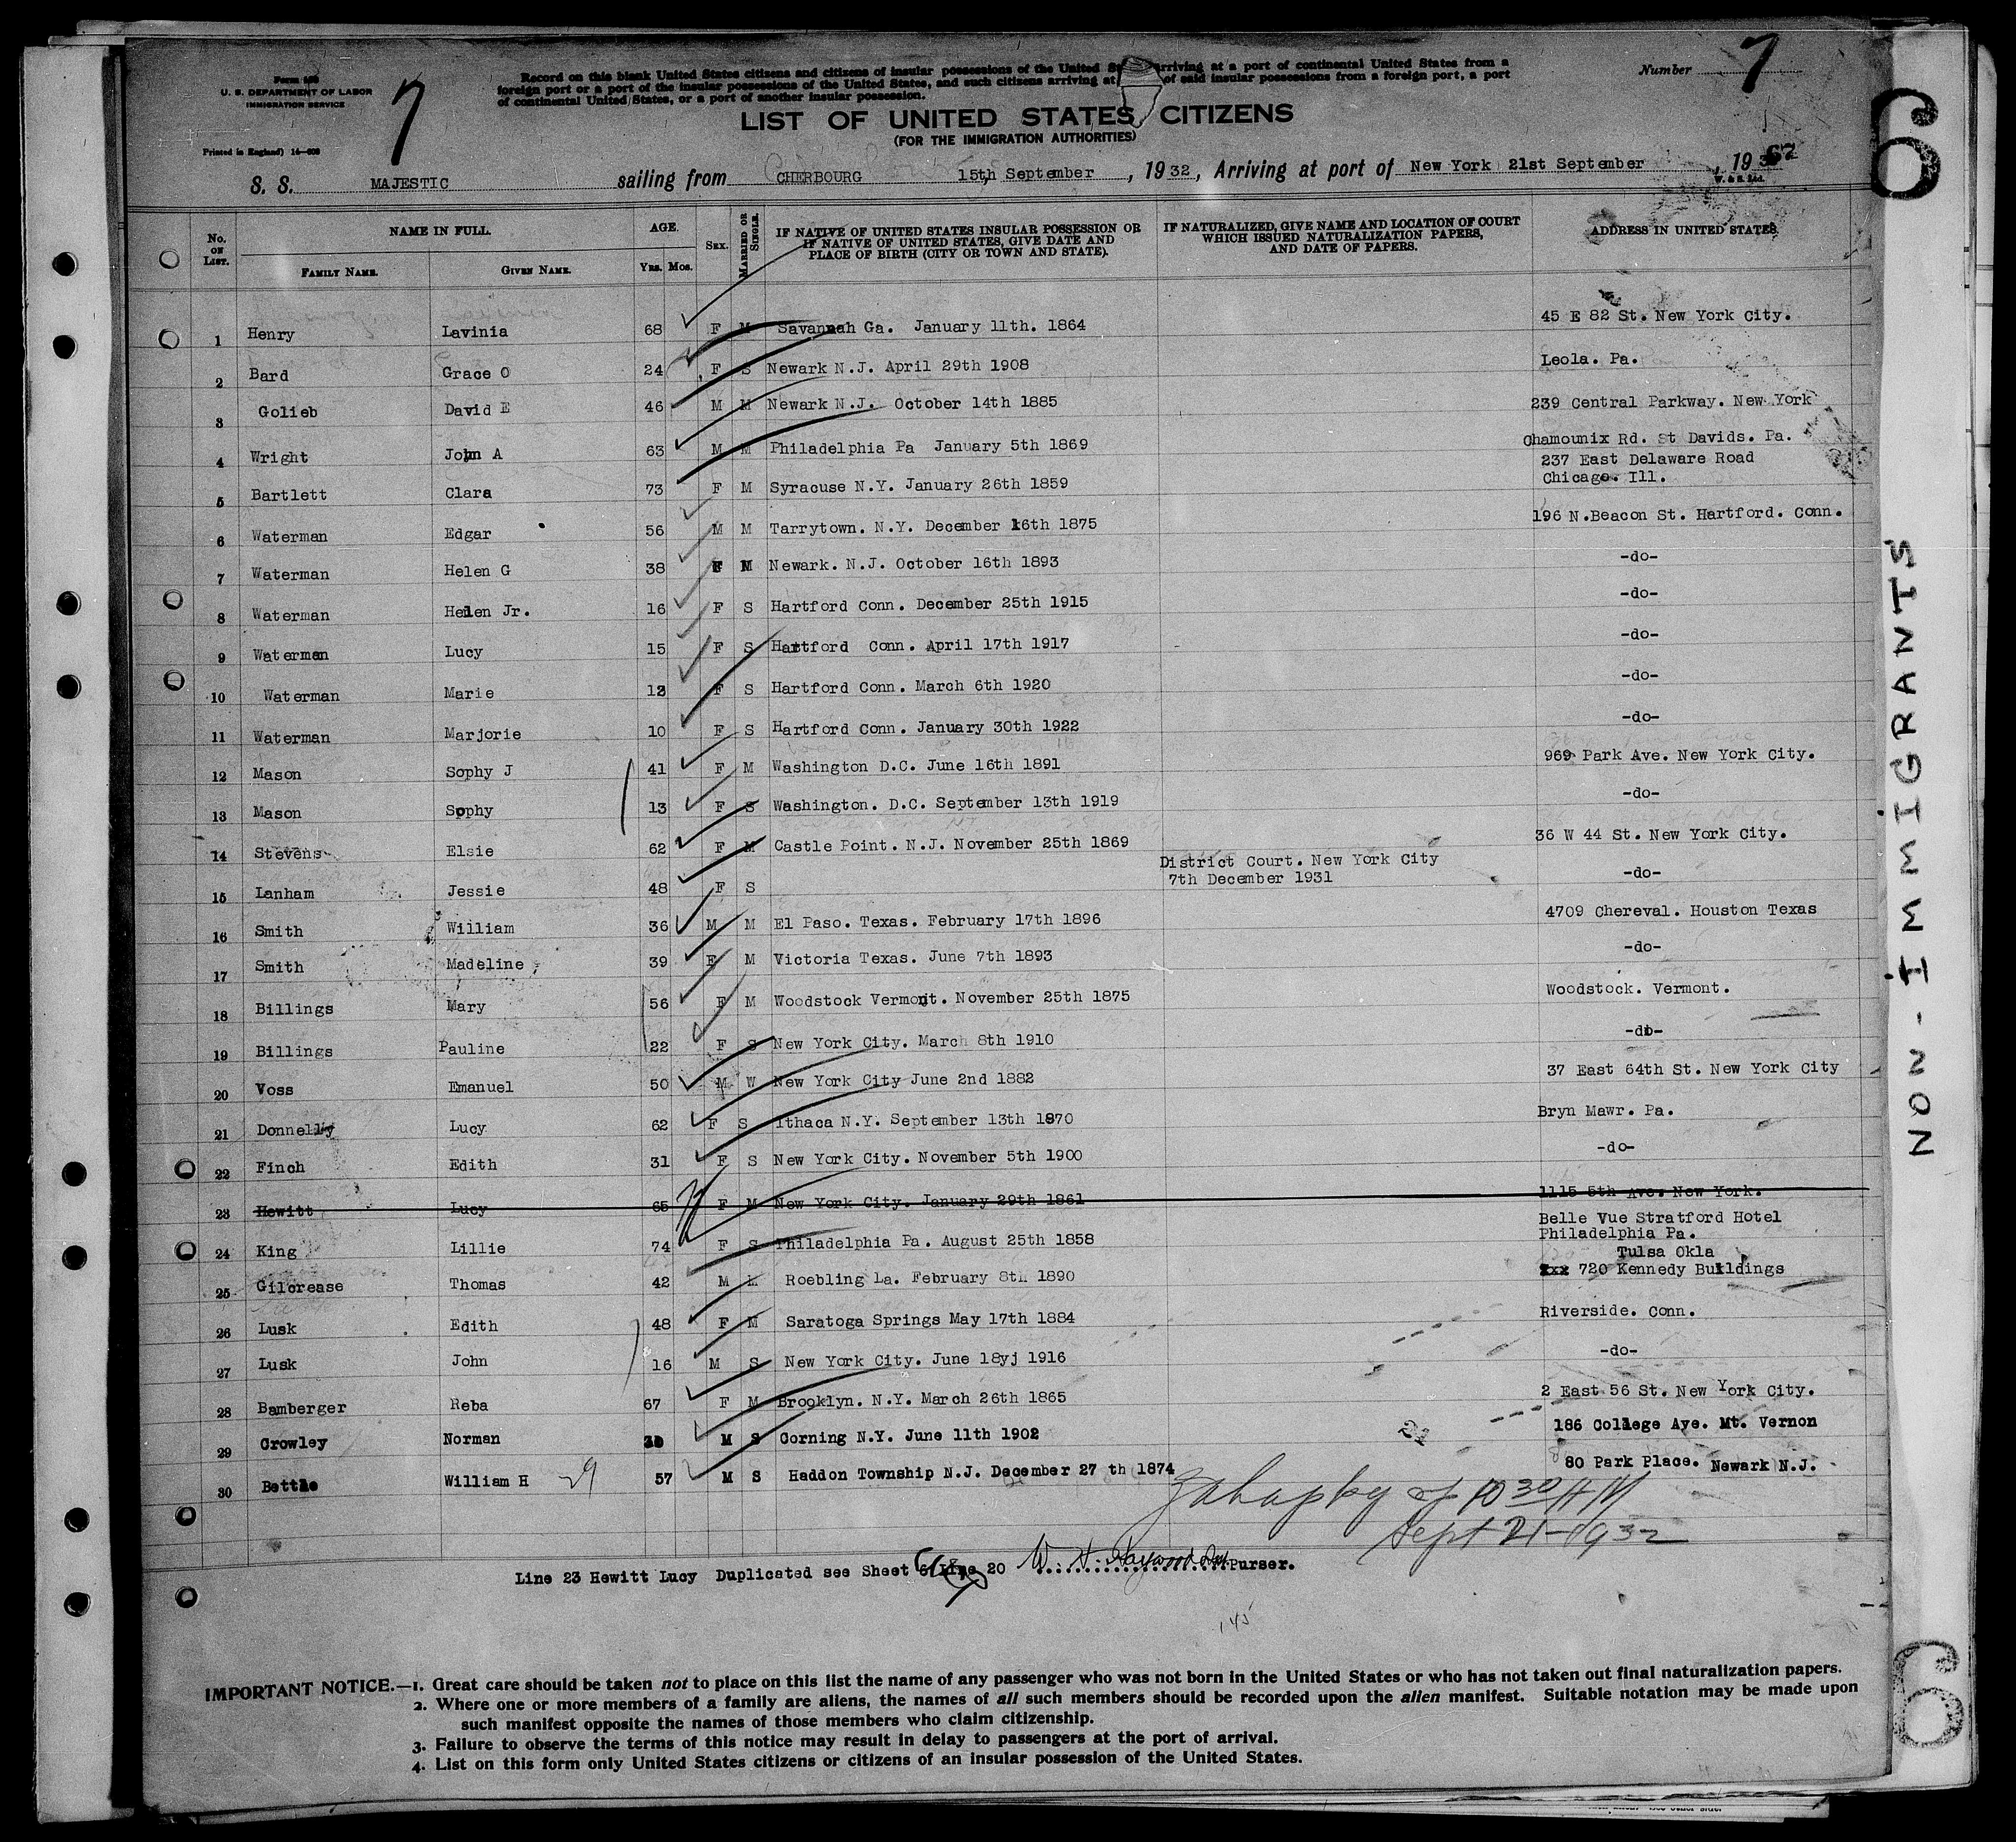 Form 
U. S. DEPARTMENT OF LABOR
IMMIGRATION SERVICE
Printed in England) 14—
7
Record on this blank United States citizens and citizens of insular possessions of the United arriving at a port of continental United States from a
foreign port or a port of the insular possessions of the United States, and such citizens arriving at of said insular possessions from a foreign port, a port
of continental United States, or a port of another insular possession.
Number 7
LIST OF UNITED STATES CITIZENS
(FOR THE IMMIGRATION AUTHORITIES)
6
S. S. MAJESTIC sailing from CHERBOURG 15th September, 1932, Arriving at port of New York 21st September, 19
W. & S. Ltd.
No. ON LIST. NAME IN FULL. AGE. SEX. MARRIED OR SINGLE. IF NATIVE OF UNITED STATES INSULAR POSSESSION OR IF NATIVE OF UNITED STATES, GIVE DATE AND PLACE OF BIRTH (CITY OR TOWN AND STATE). IF NATURALIZED, GIVE NAME AND LOCATION OF COURT WHICH ISSUED NATURALIZATION PAPERS, AND DATE OF PAPERS. ADDRESS IN UNITED STATES.
FAMILY NAME. GIVEN NAME. YRS. MOS.
1 Henry Lavinia 68 F M Savannah Ga. January 11th. 1864 45 E 82 St. New York City.
2 Bard Grace O 24 F S Newark N.J. April 29th 1908 Leola. Pa.
3 Golieb David E 46 M M Newark N.J. October 14th 1885 239 Central Parkway. New York
4 Wright John A 63 M M Philadelphia Pa January 5th 1869 Chamounix Rd. St Davids. Pa.
5 Bartlett Clara 73 F M Syracuse N.Y. January 26th 1859 237 East Delaware Road
Chicago. Ill.
6 Waterman Edgar 56 M M Tarrytown. N.Y. December 16th 1875 196 N.Beacon St. Hartford. Conn.
7 Waterman Helen G 38 F M Newark. N.J. October 16th 1893 -do-
8 Waterman Helen Jr. 16 F S Hartford Conn. December 25th 1915 -do-
9 Waterman Lucy 15 F S Hartford Conn. April 17th 1917 -do-
10 Waterman Marie 12 F S Hartford Conn. March 6th 1920 -do-
11 Waterman Marjorie 10 F S Hartford Conn. January 30th 1922 -do-
12 Mason Sophy J 41 F M Washington D.C. June 16th 1891 969 Park Ave. New York City.
13 Mason Sophy 13 F S Washington. D.C. September 13th 1919 -do-
14 Stevens Elsie 62 F M Castle Point. N.J. November 25th 1869 36 W 44 St. New York City.
15 Lanham Jessie 48 F S District Court. New York City -do-
7th December 1931
16 Smith William 36 M M El Paso. Texas. February 17th 1896 4709 Chereval. Houston Texas
17 Smith Madeline 39 F M Victoria Texas. June 7th 1893 -do-
18 Billings Mary 56 F M Woodstock Vermont. November 25th 1875 Woodstock. Vermont.
19 Billings Pauline 22 F S New York City. March 8th 1910 -do-
20 Voss Emanuel 50 M W New York City June 2nd 1882 37 East 64th St. New York City
21 Donnelly Lucy 62 F S Ithaca N.Y. September 13th 1870 Bryn Mawr. Pa.
22 Finch Edith 31 F S New York City. November 5th 1900 -do-
23 Hewitt Lucy 65 F M New York City. January 29th 1861 1115 5th Ave. New York.
24 King Lillie 74 F S Philadelphia Pa. August 25th 1858 Belle Vue Stratford Hotel
Philadelphia Pa.
25 Gilcrease Thomas 42 M M Roebling La. February 8th 1890 Tulsa Okla
xxx 720 Kennedy Buildings
26 Lusk Edith 48 F M Saratoga Springs May 17th 1884 Riverside. Conn.
27 Lusk John 16 M S New York City. June 18yj 1916 -do-
28 Bamberger Reba 67 F M Brooklyn. N.Y. March 26th 1865 2 East 56 St. New York City.
29 Crowley Norman M S Corning N.Y. June 11th 1902 186 College Aye. Mt. Vernon
30 Bettle William H 29 57 M S Haddon Township N.J. December 27 th 1874 80 Park Place. Newark N.J.
of 10 30 AM
Sept 21-1932
Line 23 Hewitt Lucy Duplicated see Sheet Line 20 W. H. Purser.
145
NON-IMMIGRANTS
IMPORTANT NOTICE.—1. Great care should be taken not to place on this list the name of any passenger who was not born in the United States or who has not taken out final naturalization papers.
2. Where one or more members of a family are aliens, the names of all such members should be recorded upon the alien manifest. Suitable notation may be made upon
such manifest opposite the names of those members who claim citizenship.
3. Failure to observe the terms of this notice may result in delay to passengers at the port of arrival.
4. List on this form only United States citizens or citizens of an insular possession of the United States.
6